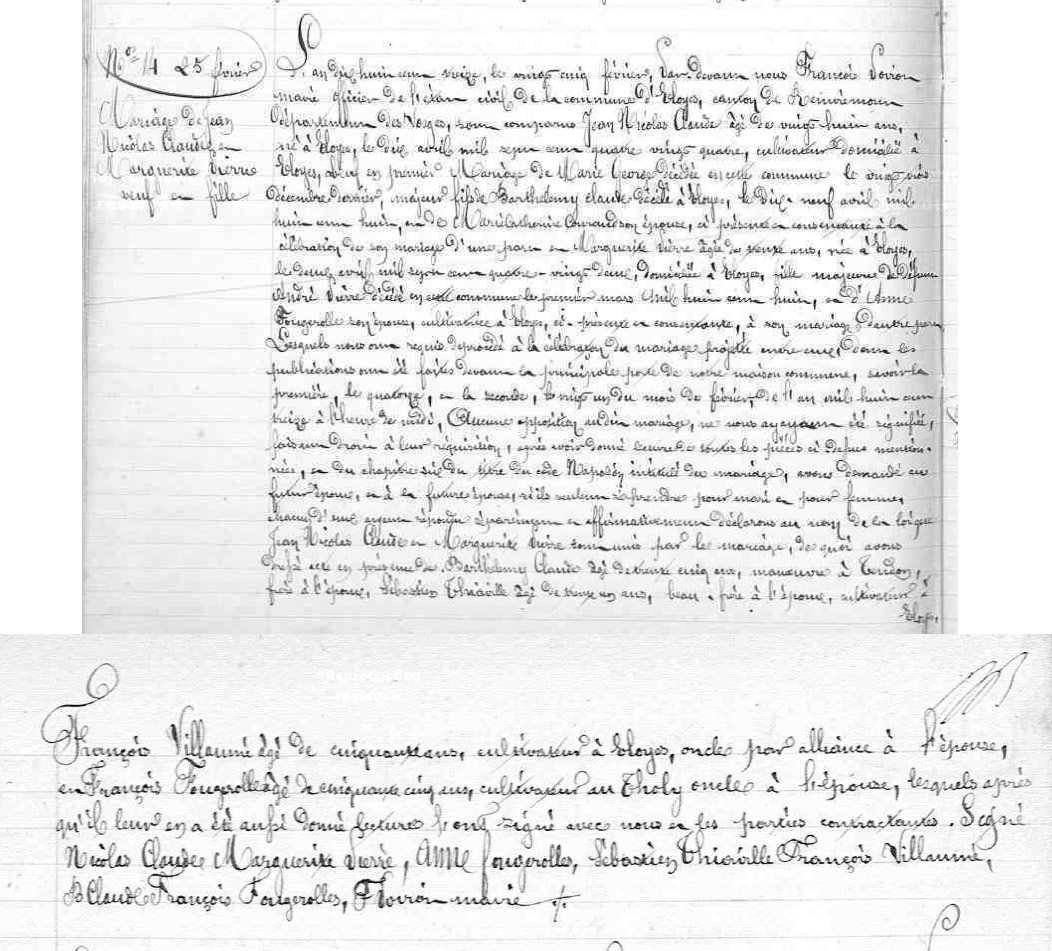 N.o 14 25 février
Mariage de Jean
Nicolas Claude et
Marguerite Vierre
veuf et fille
L'an dix huit cent treize, le vingt cinq février, Par devant nous François
maire officier de l'état civil de la commune d'Eloyes, canton de Remiremont
département des Vosges, sont comparus Jean Nicolas Claude âgé de vingt huit ans,
né à Eloyes, le dix avril mil sept cent quatre vingt quatre, cultivateur domicilié à
Eloyes, veuf en premier Mariage de Marie George décédée en cette commune le vingt trois
décembre dernier, majeur fils de Barthelemy Claude décédé à Eloyes, le Dix-neuf avril mil
huit cent huit, et de Marie Catherine son épouse, ci présente et consentante à la
célébration de son mariage d'une part et Marguerite Vierre âgée de trente ans, née à Eloyes,
le deux avril mil sept cent quatre-vingt deux, domiciliée à Eloyes, fille majeure de défunt
André Vierre décédé en cette commune le premier mars mil huit cent huit, et d'Anne
Fougerolle son épouse, cultivatrice à Eloyes, ci-présente et consentante, à son mariage d'autre part
Lesquels nous ont requis de procéder à la célébration du mariage projetté entre eux, dont les
publications ont été faites devant la principale porte de notre maison commune, savoir la
première, le quatorze, et la seconde, le vingt un du mois de février de l'an mil huit cent
treize à l'heure de midi, Aucune opposition audit mariage, ne nous ayant été signifiée,
faisant droit à leur réquisition, après avoir donné lecture de toutes les pièces ci dessus mention-
nées, et du chapitre six du titre du code Napoléon intitulé du mariage, avons demandé au
futur époux, et à la future épouse, s'ils veulent se prendre pour mari et pour femme,
chacun d'eux ayant répondu séparément et affirmativement déclarons au nom de la loi que
Jean Nicolas Claude et Marguerite Vierre sont unis par le mariage, de quoi avons
dressé acte en présence de Barthelemy Claude âgé de trente cinq ans, manœuvre à Tendon,
frère à l'époux, Sébastien Thiaville âgé de trente un ans, beau-frère à l'épouse, cultivateur à
Eloyes,
François Villaumé âgé de cinquante ans, cultivateur à Eloyes, oncle par alliance à l'épouse,
et François Fougerolle âgé de cinquante cinq ans, cultivateur au Tholy oncle à l'épouse, lesquels après
qu'il leur en a été aussi donné lecture l'ont signé avec nous et les parties contractantes. Signé
Nicolas Claude Marguerite Vierre, Anne fougerolles, Sébastien Thiaville François Villaumé,
B Claude François Fougerolles, maire